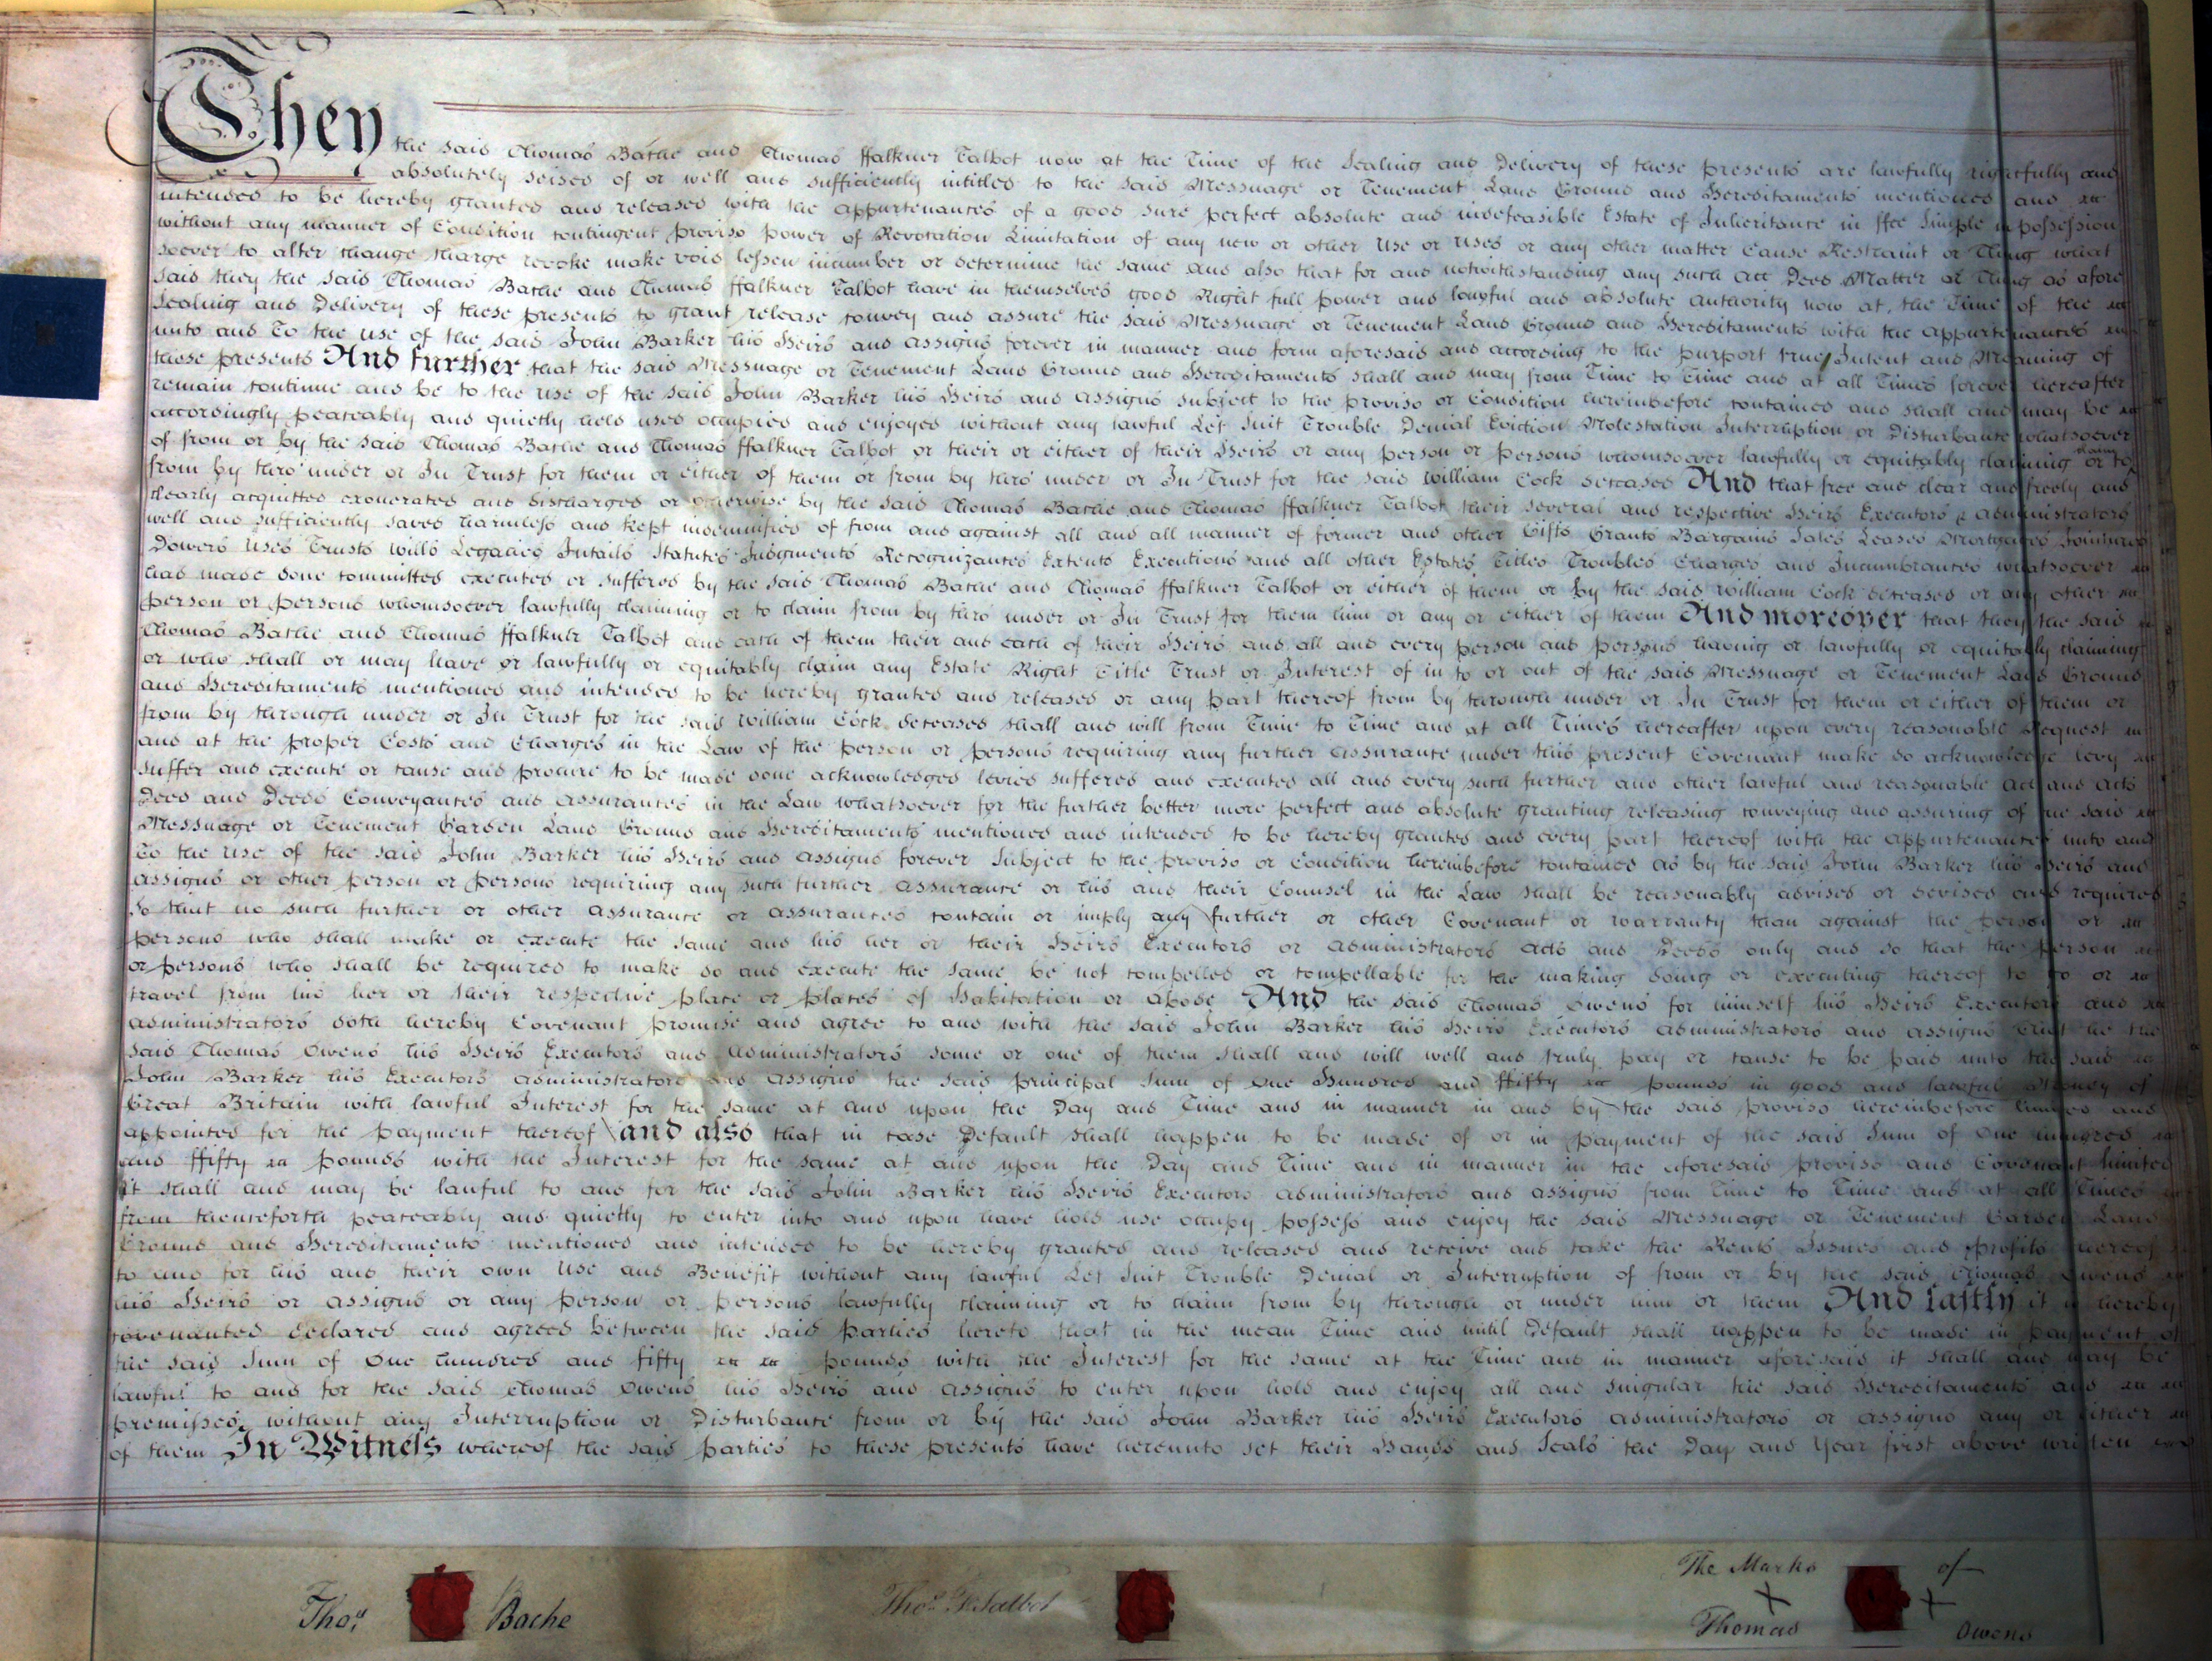 They the said Thomas Bache and Thomas ffalkner Talbot now at the Time of the Sealing and Delivery of these presents are lawfully rightfully and
absolutely seised of or well and sufficiently intitled to the said Messuage or Tenement Land Ground and Hereditaments mentioned and
intended to be hereby granted and released with the appurtenances of a good sure perfect absolute and indefeasible Estate of Inheritance in ffee Simple in possession
without any manner of Condition contingent proviso power of Revocation Limitation of any new or other Use or Uses or any other matter Cause Restraint or Thing what
soever to alter change charge revoke make void lessen incumber or determine the same and also that for and notwithstanding any such act Deed Matter or Thing as afore
said they the said Thomas Bache and Thomas ffalkner Talbot have in themselves good Right full power and lawful and absolute authority now at the Time of the
Sealing and Delivery of these presents to grant release convey and assure the said Messuage or Tenement Land Ground and Hereditaments with the appurtenances
unto and To the use of the said John Barker his Heirs and assigns forever in manner and form aforesaid and according to the purport true Intent and Meaning of
these presents And further that the said Messuage or Tenement Land Ground and Hereditaments shall and may from Time to Time and at all Times forever hereafter
remain continue and be to the use of the said John Barker his Heirs and assigns subject to the proviso or Condition hereinbefore contained and shall and may be
accordingly peaceably and quietly held used occupied and enjoyed without any lawful Let Suit Trouble Denial Eviction Molestation Interruption or Disturbance whatsoever
of from or by the said Thomas Bache and Thomas ffalkner Talbot or their or either of their Heirs or any person or persons whomsoever lawfully or equitably claiming or to claim
from by thro' under or In Trust for them or either of them or from by thro' under or In Trust for the said William Cock deceased And that free and clear and freely and
clearly acquitted exonerated and discharged or otherwise by the said Thomas Bache and Thomas ffalkner Talbot their several and respective Heirs Executors & administrators
well and sufficiently saved harmless and kept indemnified of from and against all and all manner of former and other Gifts Grants Bargains Sales Leases Mortgages Jointures
Dowers Uses Trusts Wills Legacies Intails Statutes Judgments Recognizances Extents Executions and all other Estates Titles Troubles Charges and Incumbrances whatsoever
had made done committed executed or suffered by the said Thomas Bache and Thomas ffalkner Talbot or either of them or by the said William Cock deceased or any other
person or persons whomsoever lawfully claiming or to claim from by thro' under or In Trust for them him or any or either of them And moreover that they the said
Thomas Bache and Thomas ffalkner Talbot and each of them their and each of their Heirs and all and every person and persons having or lawfully or equitably claiming
or who shall or may have or lawfully or equitably claim any Estate Right Title Trust or Interest of in to or out of the said Messuage or Tenement Land Ground
and Hereditaments mentioned and intended to be hereby granted and released or any part thereof from by through under or In Trust for them or either of them or
from by through under or In Trust for the said William Cock deceased shall and will from Time to Time and at all Times hereafter upon every reasonable Request
and at the proper Costs and Charges in the Law of the person or persons requiring any further assurance under this present Covenant make do acknowledge levy
suffer and execute or cause and procure to be made done acknowledged levied suffered and executed all and every such further and other lawful and reasonable act and acts
Deed and Deeds Conveyances and assurances in the Law whatsoever for the further better more perfect and absolute granting releasing conveying and assuring of the said
Messuage or Tenement Garden Land Ground and Hereditaments mentioned and intended to be hereby granted and every part thereof with the appurtenances unto and
To the use of the said John Barker his Heirs and assigns forever subject to the proviso or Condition hereinbefore contained as by the said John Barker his Heirs and
assigns or other person or persons requiring any such further assurance or his and their Counsel in the Law shall be reasonably advised or devised and required
So that no such further or other assurance or assurances contain or imply any further or other Covenant or warranty than against the person or
persons who shall make or execute the same and his her or their Heirs Executors or administrators acts and Deeds only and so that the person
or persons who shall be required to make do and execute the same be not compelled or compellable for the making doing or executing thereof to go or
travel from his her or their respective place or places of Habitation or abode And the said Thomas Owens for himself his Heirs Executors and
administrators doth hereby Covenant promise and agree to and with the said John Barker his Heirs Executors administrators and assigns that he the
said Thomas Owens his Heirs Executors and administrators some or one of them shall and will well and truly pay or cause to be paid unto the said
John Barker his Executors administrators and assigns the said principal Sum of One Hundred and ffifty pounds in good and lawful Money of
Great Britain with lawful Interest for the same at and upon the Day and Time and in manner in and by the said proviso hereinbefore limited and
appointed for the payment thereof and also that in case Default shall happen to be made of or in payment of the said Sum of One hundred
and ffifty pounds with the Interest for the same at and upon the Day and Time and in manner in the aforesaid proviso and Covenant limited
it shall and may be lawful to and for the said John Barker his Heirs Executors administrators and assigns from Time to Time and at all Times
from thenceforth peaceably and quietly to enter into and upon have hold use occupy possess and enjoy the said Messuage or Tenement Garden Land
Ground and Hereditaments mentioned and intended to be hereby granted and released and receive and take the Rents Issues and profits thereof
to and for his and their own Use and Benefit without any lawful Let Suit Trouble Denial or Interruption of from or by the said Thomas Owens
his Heirs or assigns or any person or persons lawfully claiming or to claim from by through or under him or them And lastly it is hereby
covenanted declared and agreed between the said parties hereto that in the mean Time and until Default shall happen to be made in payment of
the said Sum of One hundred and fifty pounds with the Interest for the same at the Time and in manner aforesaid it shall and may be
lawful to and for the said Thomas Owens his Heirs and assigns to enter upon hold and enjoy all and singular the said Hereditaments and
premisses without any Interruption or Disturbance from or by the said John Barker his Heirs Executors administrators or assigns any or either
of them In Witness whereof the said parties to these presents have hereunto set their Hands and Seals the Day and Year first above written
Thos. Bache
Thos. F. Talbot
The Marks of
X X
Thomas Owens